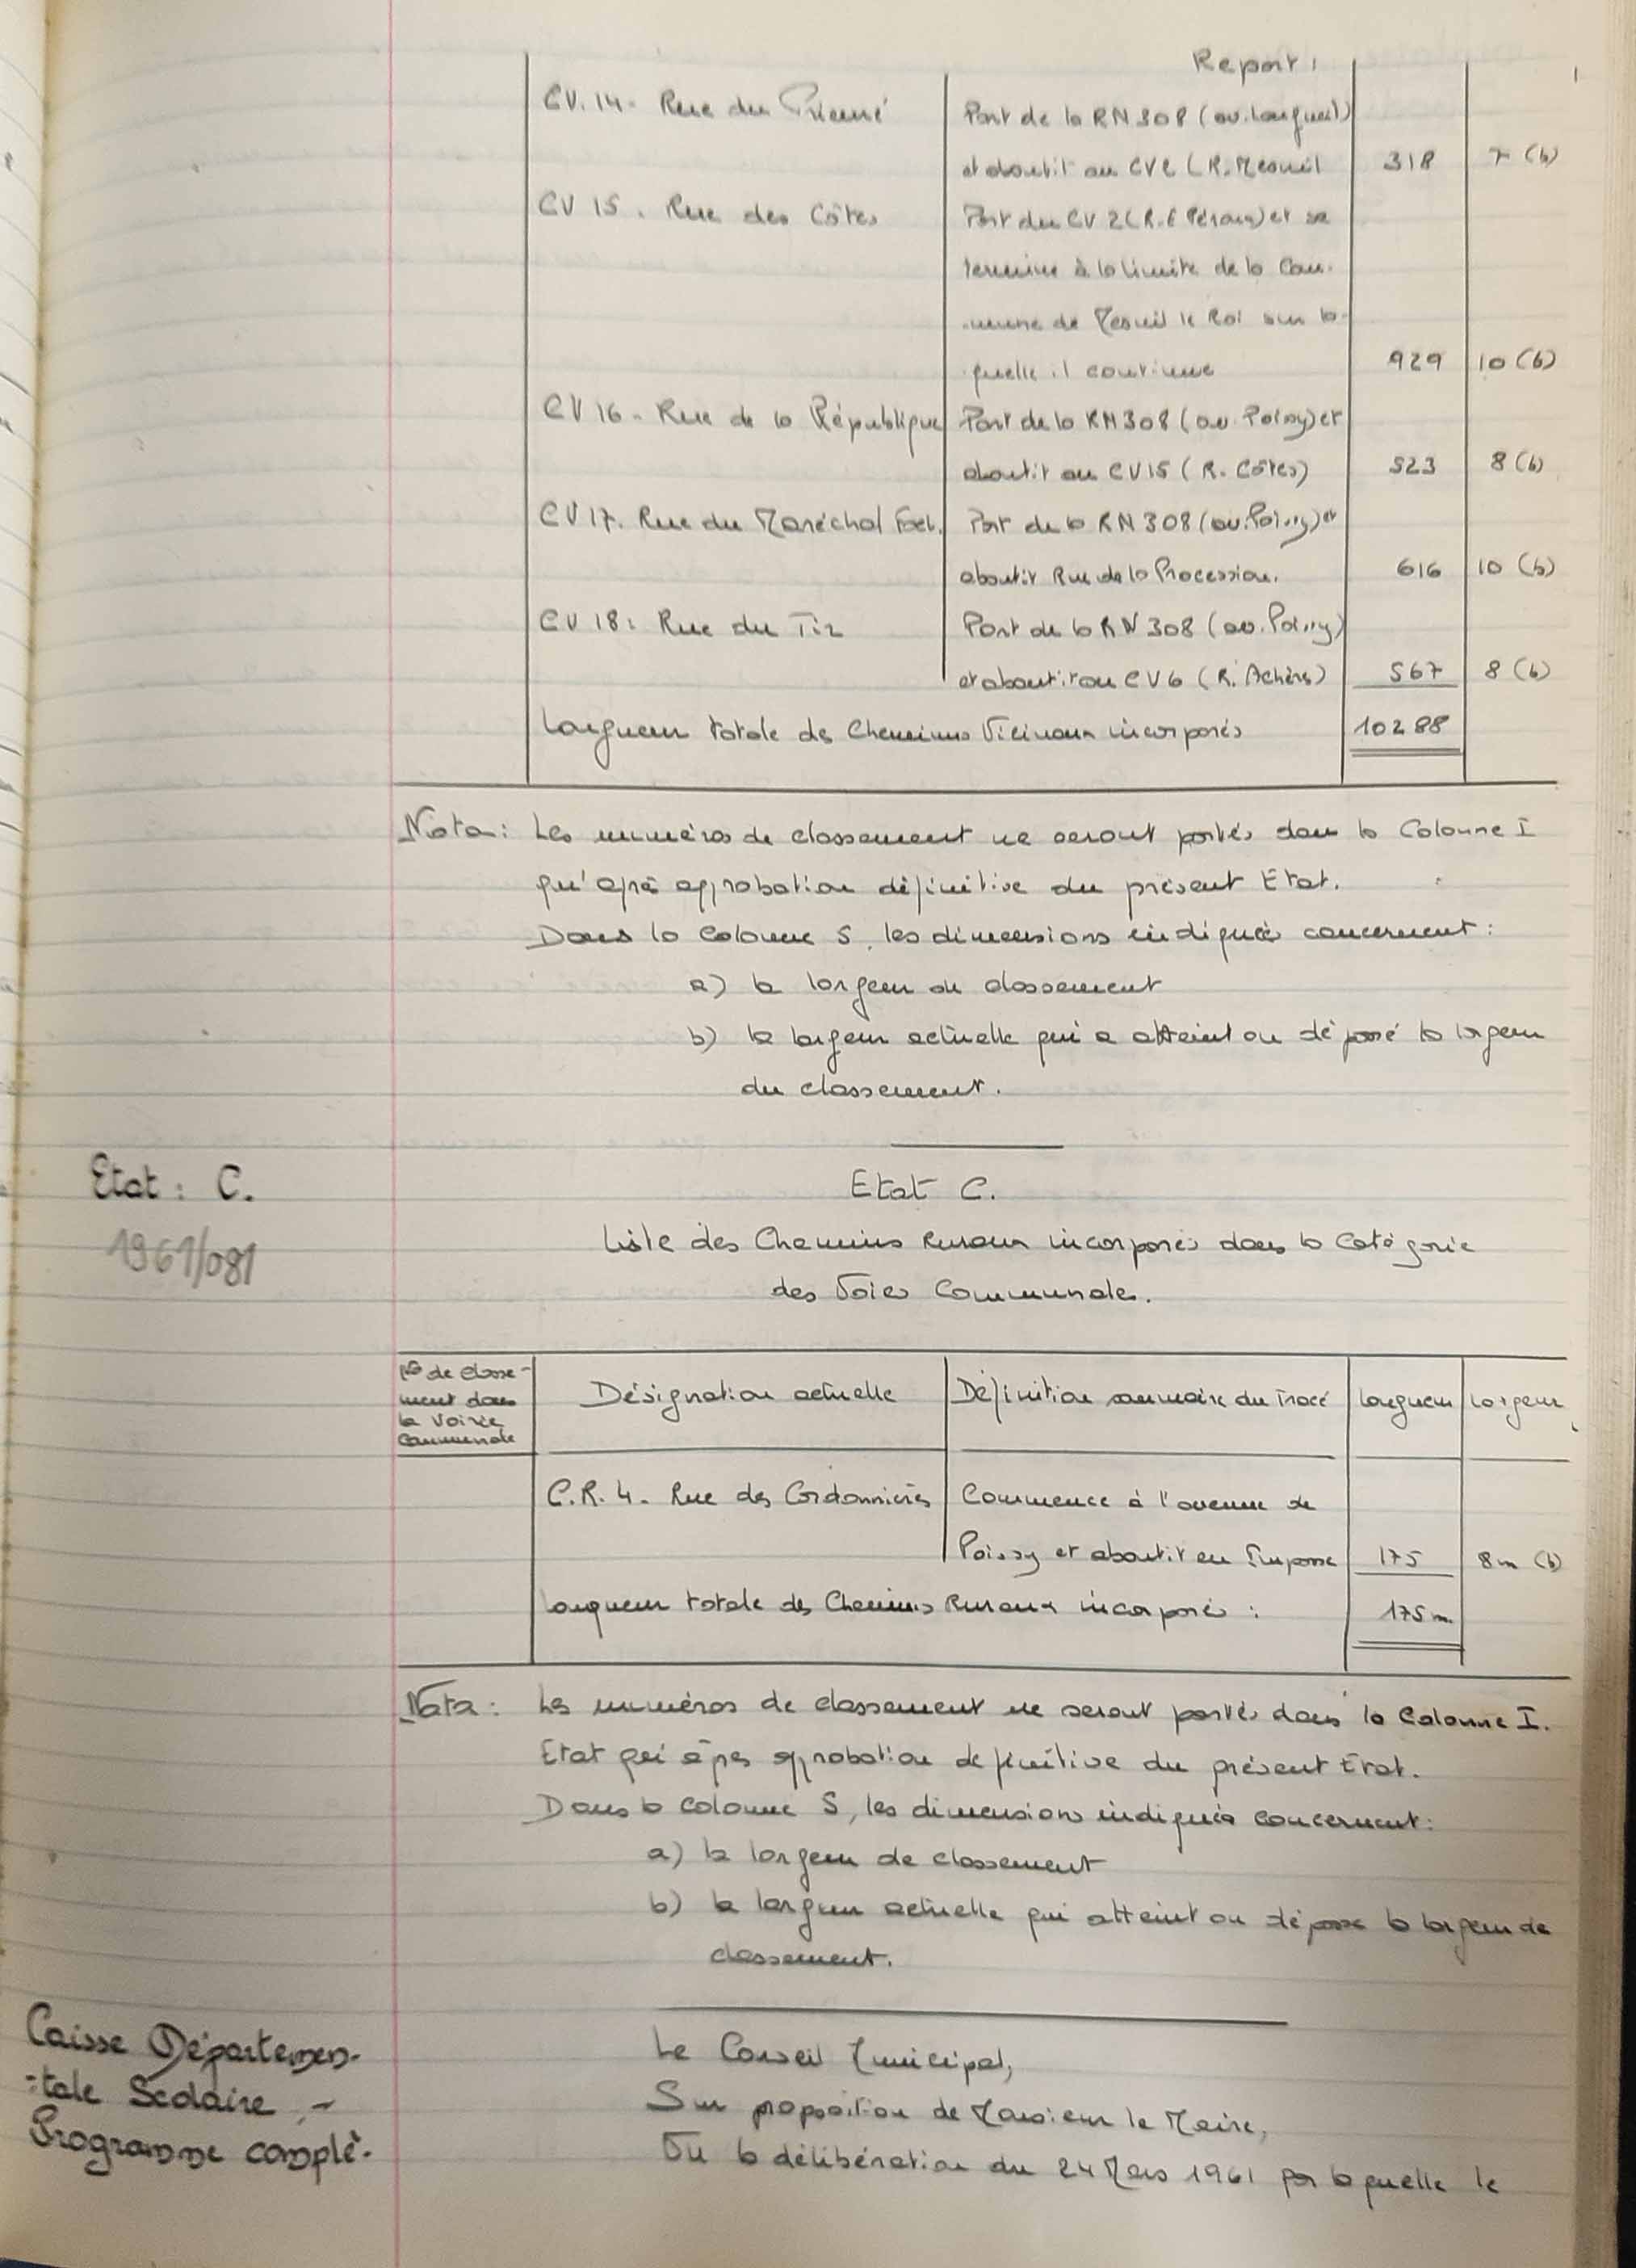 Report :
CV. 14 - Rue du Prieuré
Part de la RN 308 (av. Longueil)
et aboutit au CV2 (R. Mesnil 318 7 (b)
CV 15. Rue des Côtes Part du CV 2 (R. E Pérou) et se
termine à la limite de la Com-
-mune de Mesnil le Roi sur la-
quelle il continue 929 10 (b)
CV 16 - Rue de la République Part de la RN 308 (av. Poissy) et
aboutit au CV15 (R. Côtes) 523 8 (b)
CV 17. Rue du Maréchal Foch. Part de la RN 308 (av. Poissy) et
aboutit Rue de la Procession. 616 10 (b)
CV 18 : Rue du Tir Part de la RN 308 (av. Poissy)
et aboutit au CV6 (R. Achères) 567 8 (b)
Longueur totale des Chemins Vicinaux incorporés 10288
Nota : Les numéros de classement ne seront portés dans la Colonne I
qu'après approbation définitive du présent Etat.
Dans la colonne 5, les dimensions indiquées concernent :
a) la largeur de classement
b) la largeur actuelle qui a atteint ou dépassé la largeur
du classement.
Etat : C.
1961/081
Etat C.
Liste des Chemins Ruraux incorporés dans la Catégorie
des Voies Communales.
No de classe-
ment dans
la voirie
communale
Désignation actuelle Définition sommaire du Tracé Longueur Largeur
C.R. 4. Rue des Cordonniers Commence à l'avenue de
Poissy et aboutit en Impasse 175 8m (b)
Longueur totale des Chemins Ruraux incorporés : 175 m.
Nota : Les numéros de classement ne seront portés dans la Colonne I.
Etat qui après approbation définitive du présent Etat.
Dans la colonne 5, les dimensions indiquées concernent :
a) la largeur de classement
b) la largeur actuelle qui atteint ou dépasse la largeur de
classement.
Caisse Départemen-
-tale Scolaire. -
Programme complé-
Le Conseil Municipal,
Sur proposition de Monsieur le Maire,
Vu la délibération du 24 Mars 1961 par laquelle le